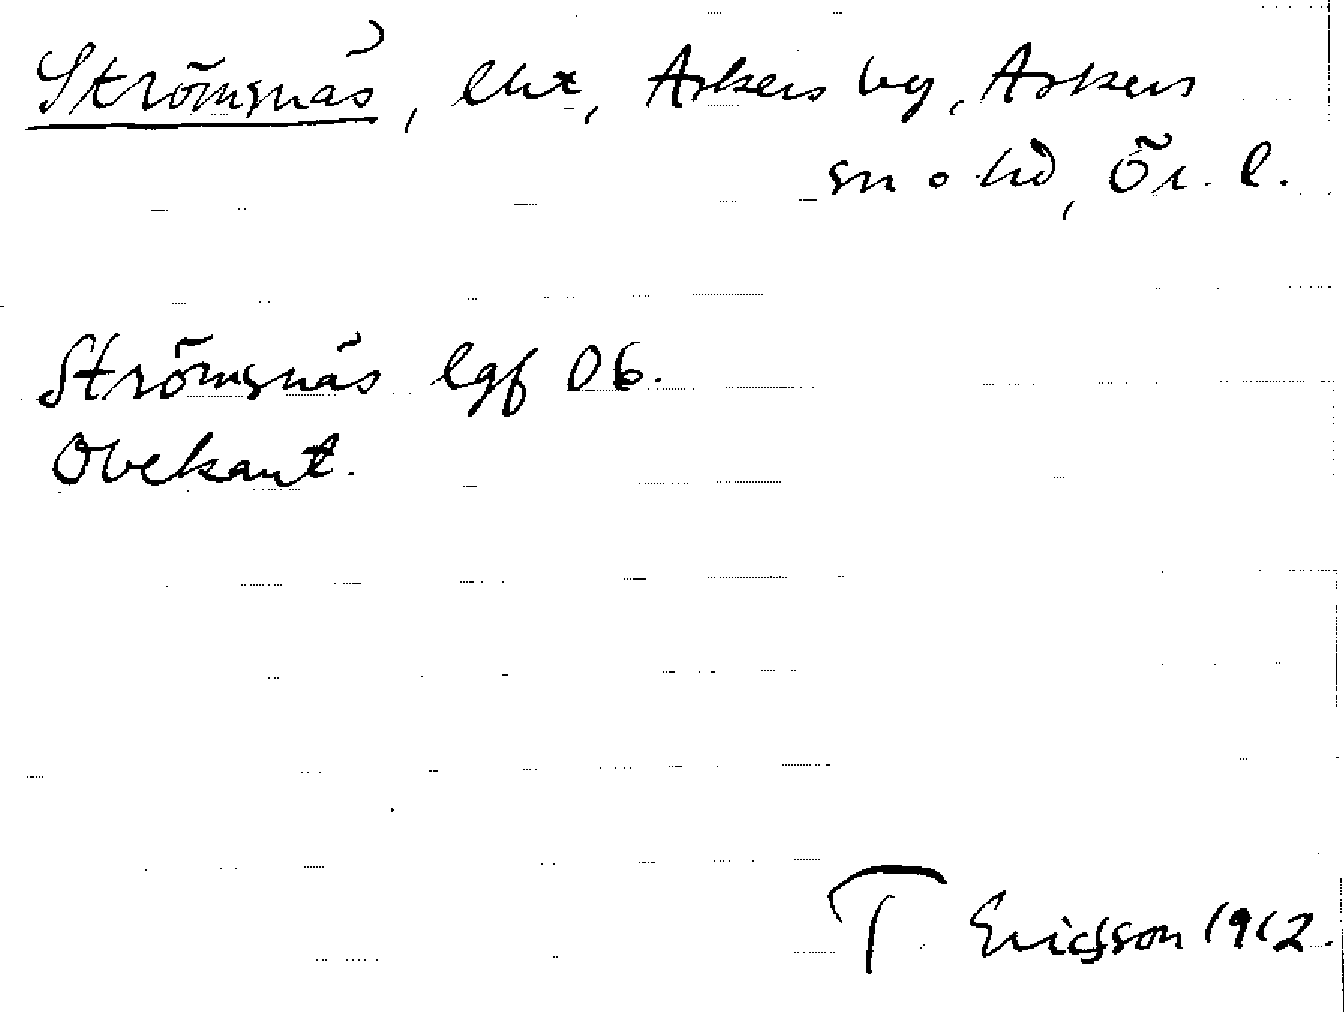 Strömsnäs, lht, Askers by, Askers
sn o hd, Ör. l.
Strömsnäs lgf 06.
Obekant.
T Ericsson 1912.